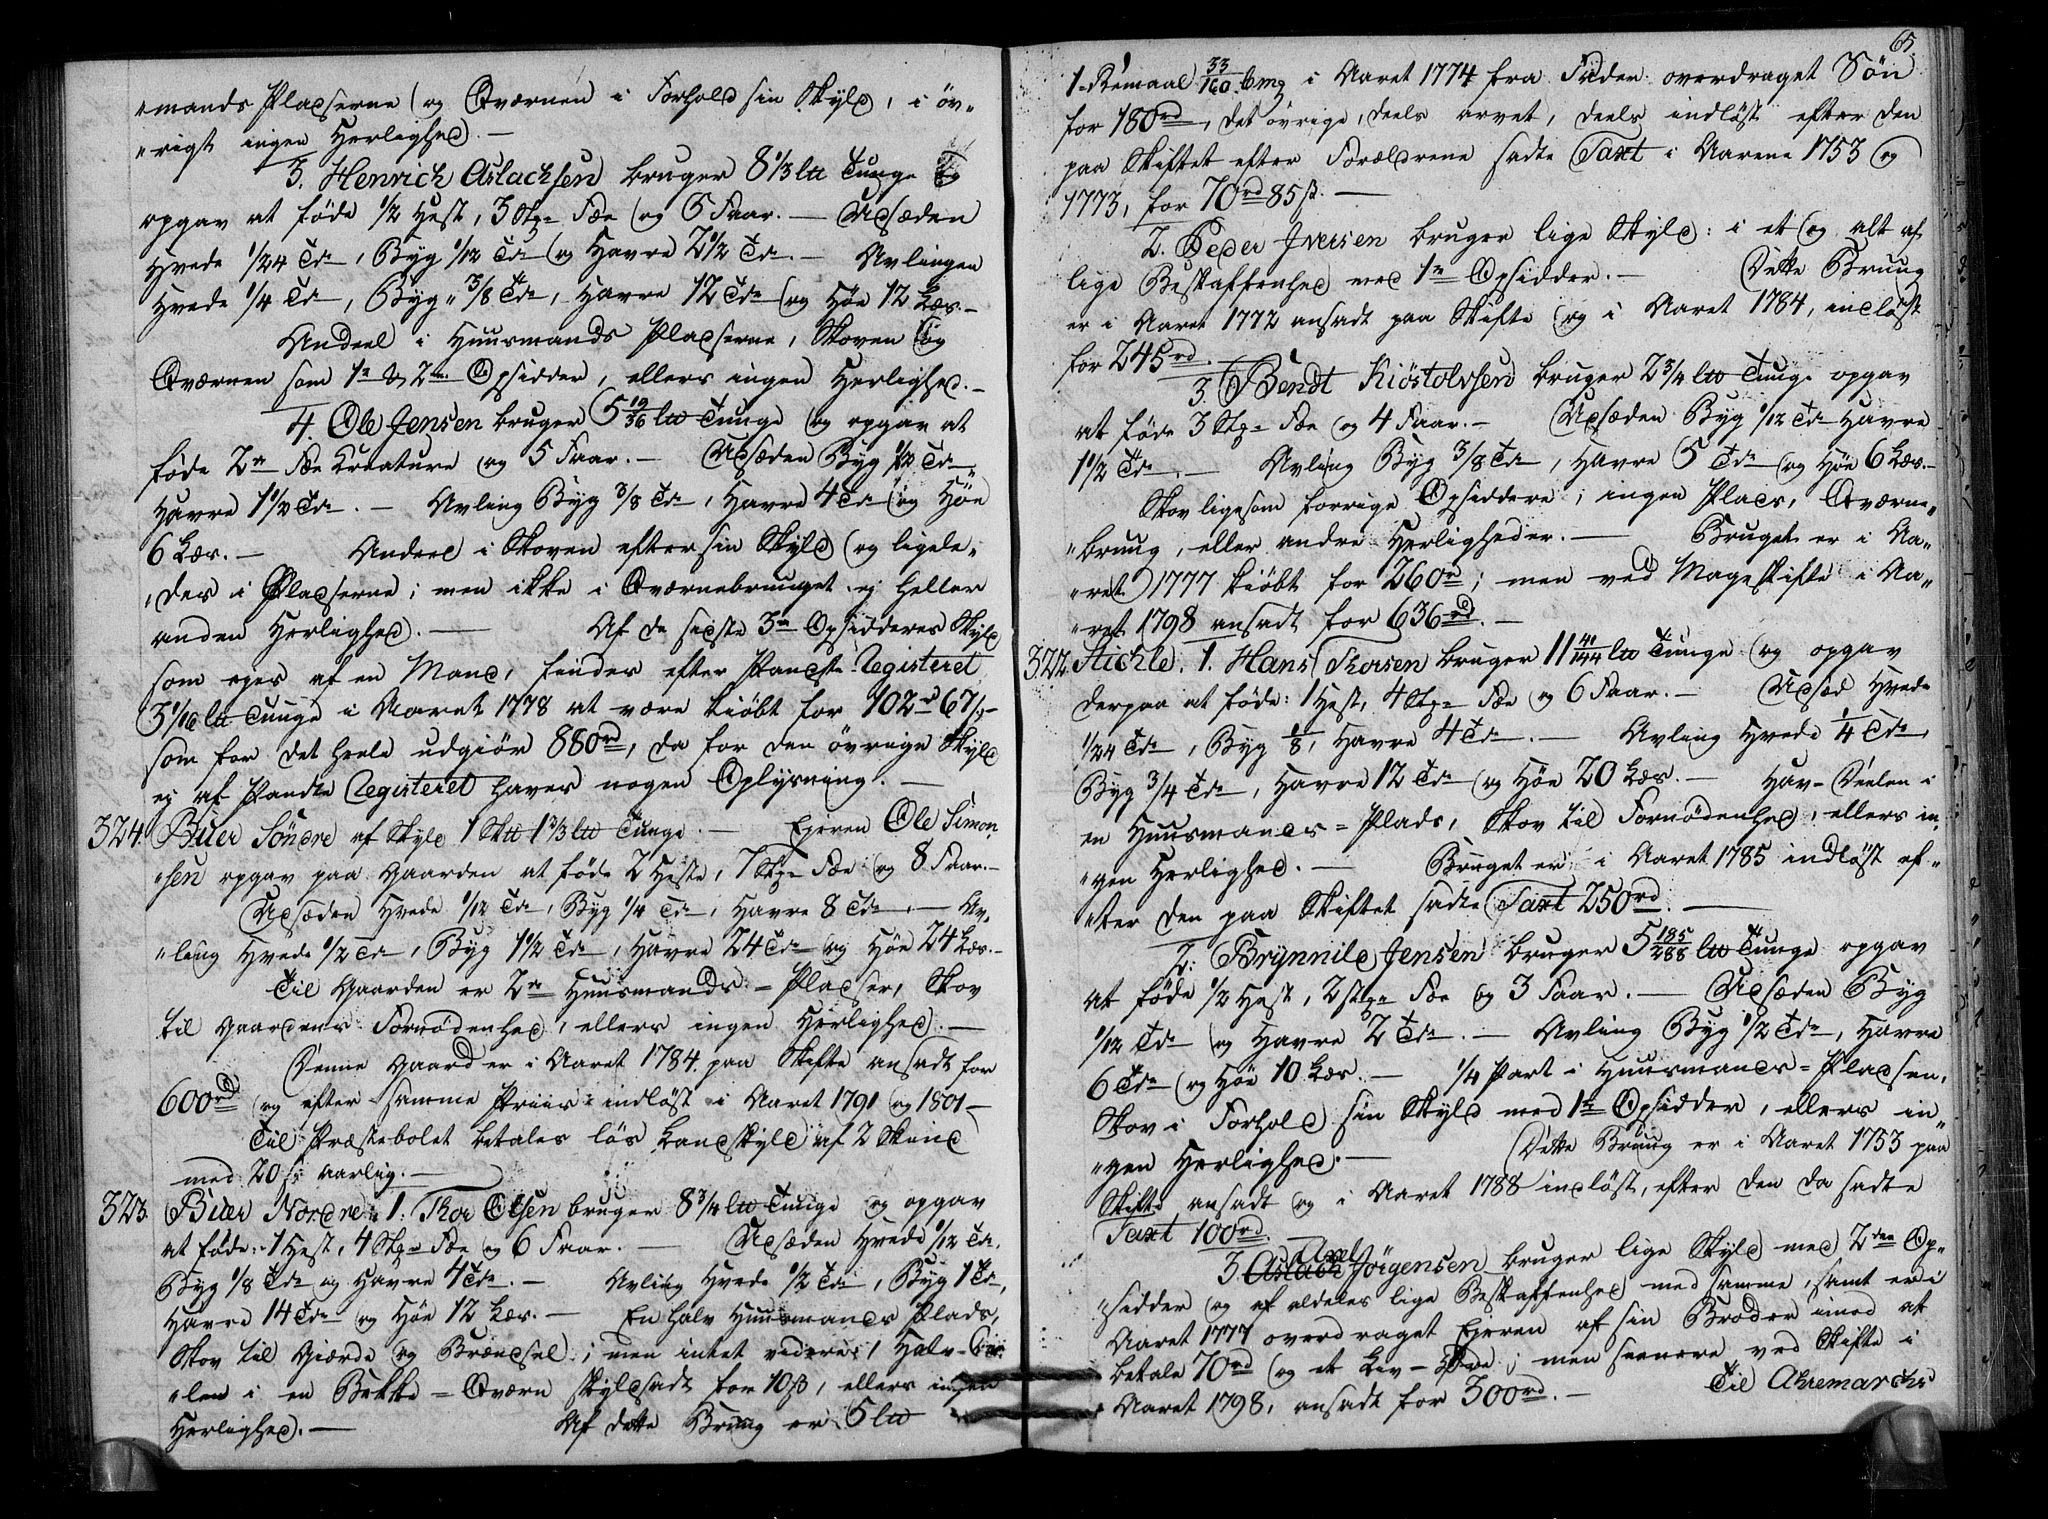 "mands Pladserne og Qværnen i Forhold sin Skyld, i öv-
"rigt ingen Herlighed. —
3. Henrich Aslachsen bruger 8 1/3 lb Tunge og
opgav at föde 1/2 Hest, 3 Stkr Fæe og 6 Faar. — Udsæden
Hvede 1/24 Tde, Byg 1/12 Tde og Havre 2 1/2 Tde. — Avlingen
Hvede 1/4 Tde, Byg 3/8 Tde, Havre 12 Tde og Höe 12 Læs. —
Andeel i Huusmands Pladserne, Skoven og
Qværnen som 1te & 2den Opsidder, ellers ingen Herlighed. —
4. Ole Jensen bruger 5 19/36 lb Tunge og opgav at
föde 2de Fæe Creature og 5 Faar. — Udsæden Byg 1/12 Tde
Havre 1 1/2 Tde. — Avling Byg 3/8 Tde, Havre 4 Tde og Höe
6 Læs. — Andeel i Skoven efter sin Skyld og ligele-
"des i Pladserne; men ikke i Qværnebruuget ej heller
anden Herlighed. — Af de sidste 3de Opsidderes Skyld
som ejes af en Mand, findes efter Pante Registeret
3 1/16 lb Tunge i Aaret 1778 at være kiöbt for 102 rd 67 s —
som for det heele udgiör 880 rd, da for den övrige Skyld
ej af Pante Registeret haves nogen Oplysning. —
324. Buer Söndre af Skyld 1 Skb 1 2/3 lb Tunge. — Ejeren Ole Simon
"sen opgav paa Gaarden at föde 2 Heste, 7 Stkr Fæe og 8 Faar. —
Udsæden Hvede 1/12 Tde, Byg 1/4 Tde, Havre 8 Tde. — Av-
"ling Hvede 1/2 Tde, Byg 1 1/2 Tde, Havre 24 Tde og Höe 24 Læs. —
Til Gaarden er 2de Huusmands-Pladser, Skov
til Gaardens Fornödenhed, ellers ingen Herlighed. —
Denne Gaard er i Aaret 1784. paa Skifte ansadt for
600 rd og efter samme Priis indlöst i Aaret 1791 og 1801 —
Til Præstebolet betales lös Landskyld af 2 Skind
med 20 s aarlig. —
323. Buer Nordre. 1. Thor Olsen bruger 8 3/4 lb Tunge og opgav
at föde: 1 Hest, 4 Stkr Fæe og 6 Faar. — Udsæden Hvede 1/12 Tde,
Byg 1/8 Tde og Havre 4 Tde. — Avling Hvede 1/2 Tde, Byg 1 Tde,
Havre 14 Tde og Höe 12 Læs. — En halv Huusmands Plads,
Skov til Giærde og Brændsel; men intet videre; 1 Halv-
"len i en Bekke-Qværn skyldsadt for 10 s, ellers ingen
Herlighed. — Af dette Bruug er 5 lb
65.
1 Remaal 33/160 bmg i Aaret 1774 fra Fader overdraget Sön
for 180 rd, det övrige, deels arvet, deels indlöst efter den
paa Skiftet efter Forældrene sadte Taxt i Aarene 1753 og
1773, for 70 rd 85 s. —
2. Peder Iversen bruger lige Skyld: i et og alt af
lige Beskaffenhed med 1te Opsidder. — Dette Bruug
er i Aaret 1772 ansadt paa Skifte og i Aaret 1784, indlöst
for 245 rd.
3. Bendt Kiöstolvsen bruger 2 3/4 lb Tunge opgav
at föde 3 Stkr Fæe og 4 Faar. — Udsæden Byg 1/12 Tde Havre
1 1/2 Tde. — Avling Byg 3/8 Tde, Havre 5 Tde og Höe 6 Læs. —
Skov ligesom forrige Opsiddere; ingen Plads, Qværne-
"bruug, eller andre Herligheder. — Bruget er i Aa-
"ret 1777 kiöbt for 260 rd; men ved Mageskifte i Aa-
"ret 1798 ansadt for 636 rd. —
322. Stichle. 1. Hans Thorsen bruger 11 41/144 lb Tunge og opgav
derpaa at föde: 1 Hest, 4 Stkr Fæe og 6 Faar. — Udsæd Hvede
1/24 Tde, Byg 1/8, Havre 4 Tde. — Avling Hvede 1/4 Tde,
Byg 3/4 Tde, Havre 12 Tde og Höe 20 Læs. — Hav-Deelen i
en Huusmands-Plads, Skov til Fornödenhed, ellers in-
"gen Herlighed. — Bruget er i Aaret 1785 indlöst ef-
"ter den paa Skiftet sadte Taxt 250 rd. —
2. Brynnild Jensen bruger 5 185/288 lb Tunge opgav
at föde 1/2 Hest, 2 Stkr Fæe og 3 Faar. — Udsæden Byg
1/12 Tde og Havre 2 Tde. — Avling Byg 1/2 Tde, Havre
6 Tde og Höe 10 Læs. — 1/4 Part i Huusmands-Pladsen,
Skov i Forhold sin Skyld med 1te Opsidder, ellers in-
"gen Herlighed. — Dette Bruug er i Aaret 1753 paa
Skifte ansadt og i Aaret 1788 indlöst, efter den da sadte
Taxt 100 rd.
3 Aslach Axel Jörgensen bruger lige Skyld med 2den Op-
"sidder og af aldeles lige Beskaffenhed med samme, samt er i
Aaret 1777 overdraget Ejeren af sin Broder imod at
betale 70 rd og et Liv-Öre; men senere ved Skifte i
Aaret 1798, ansadt for 300 rd. — Til Ahremarchs